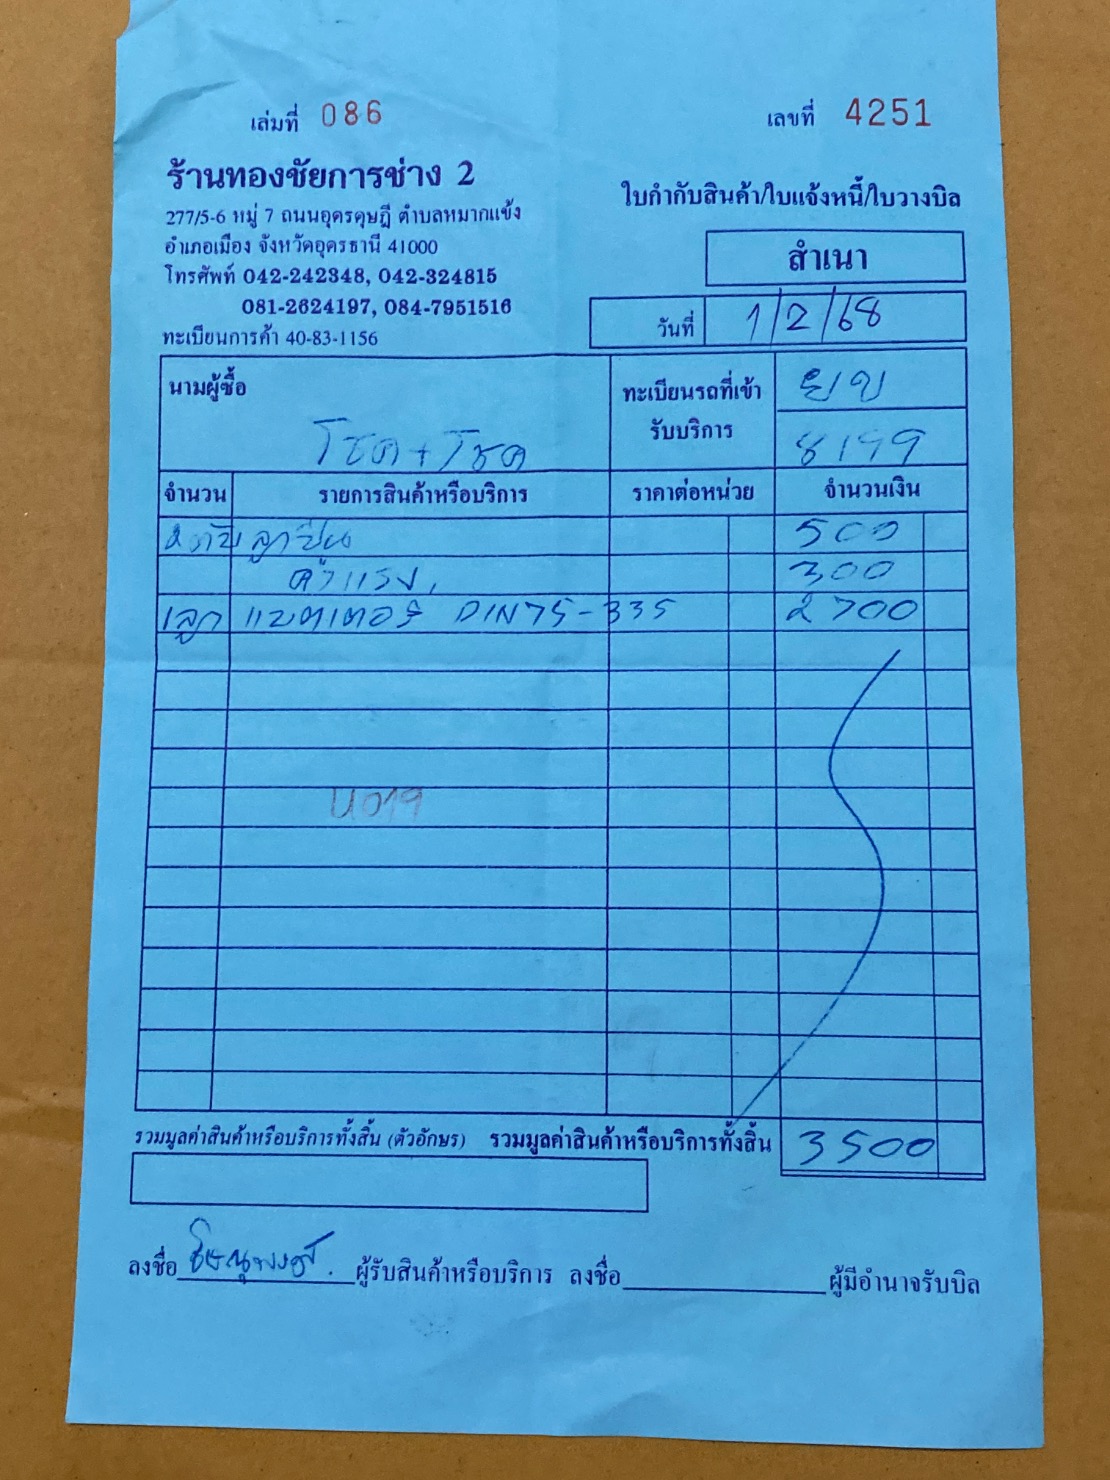 เล่มที่ 086
เลขที่ 4251
ร้านทองชัยการช่าง 2
277/5-6 หมู่ 7 ถนนอุดรดุษฎี ตำบลหมากแข้ง
อำเภอเมือง จังหวัดอุดรธานี 41000
โทรศัพท์ 042-242348, 042-324815
081-2624197, 084-7951516
ทะเบียนการค้า 40-83-1156
ใบกำกับสินค้า/ใบแจ้งหนี้/ใบวางบิล
สำเนา
วันที่ 1/2/68
นามผู้ซื้อ
โชค+โชค
ทะเบียนรถที่เข้า
รับบริการ
8199
จำนวน รายการสินค้าหรือบริการ ราคาต่อหน่วย จำนวนเงิน
2 ตลับ ลูกปืน 500
ค่าแรง 300
1 ลูก แบตเตอรี่ DIN75-335 2700
U019
รวมมูลค่าสินค้าหรือบริการทั้งสิ้น (ตัวอักษร) รวมมูลค่าสินค้าหรือบริการทั้งสิ้น 3500
ลงชื่อ ผู้รับสินค้าหรือบริการ ลงชื่อ ผู้มีอำนาจรับบิล